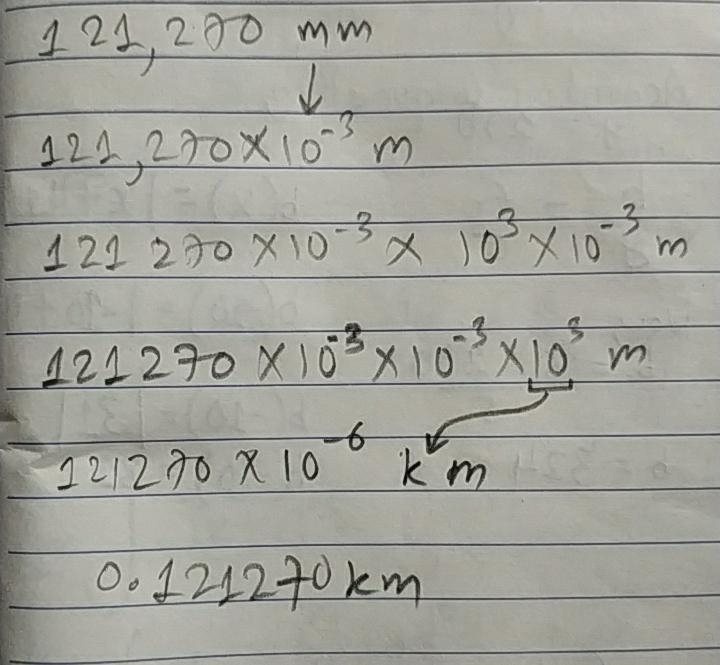 121,270 mm
↓
121,270×10⁻³ m
121 270 ×10⁻³ × 10³ × 10⁻³ m
121270 ×10⁻³ ×10⁻³ ×10³ m
121270 × 10⁻⁶ km
0.121270 km